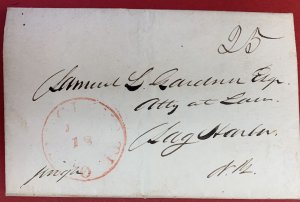 25
Samuel L. Gardiner Esqr
Atty at Law.
Sag Harbor
N.Y.
18